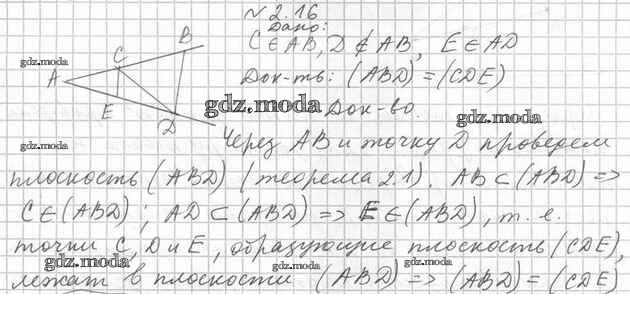 № 2.16
Дано:
C ∈ AB, D ∉ AB, E ∈ AD
Док-ть: (ABD) = (CDE)
Док-во.
Через AB и точку D проведем
плоскость (ABD) (теорема 2.1). AB ⊂ (ABD) =>
C ∈ (ABD); AD ⊂ (ABD) => E ∈ (ABD), т. е.
точки C, D и E, образующие плоскость (CDE),
лежат в плоскости (ABD) => (ABD) = (CDE)
A
C
B
E
D
gdz.moda
gdz.moda
gdz.moda
gdz.moda
gdz.moda
gdz.moda
gdz.moda
gdz.moda